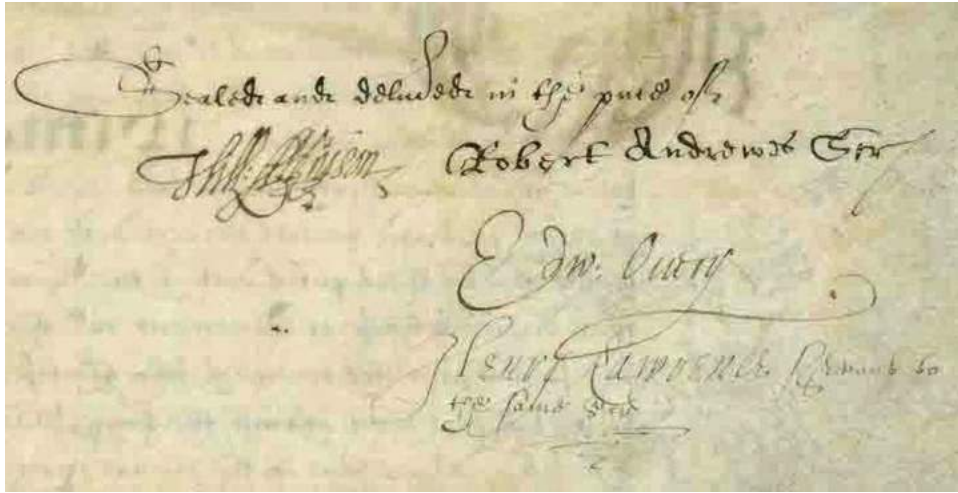 Sealed and deliuered in the pnce of
Will: Atkinson Robert Andrewes Scr
Edw: Ouery
Henry Lawrence servant to
the same Scr